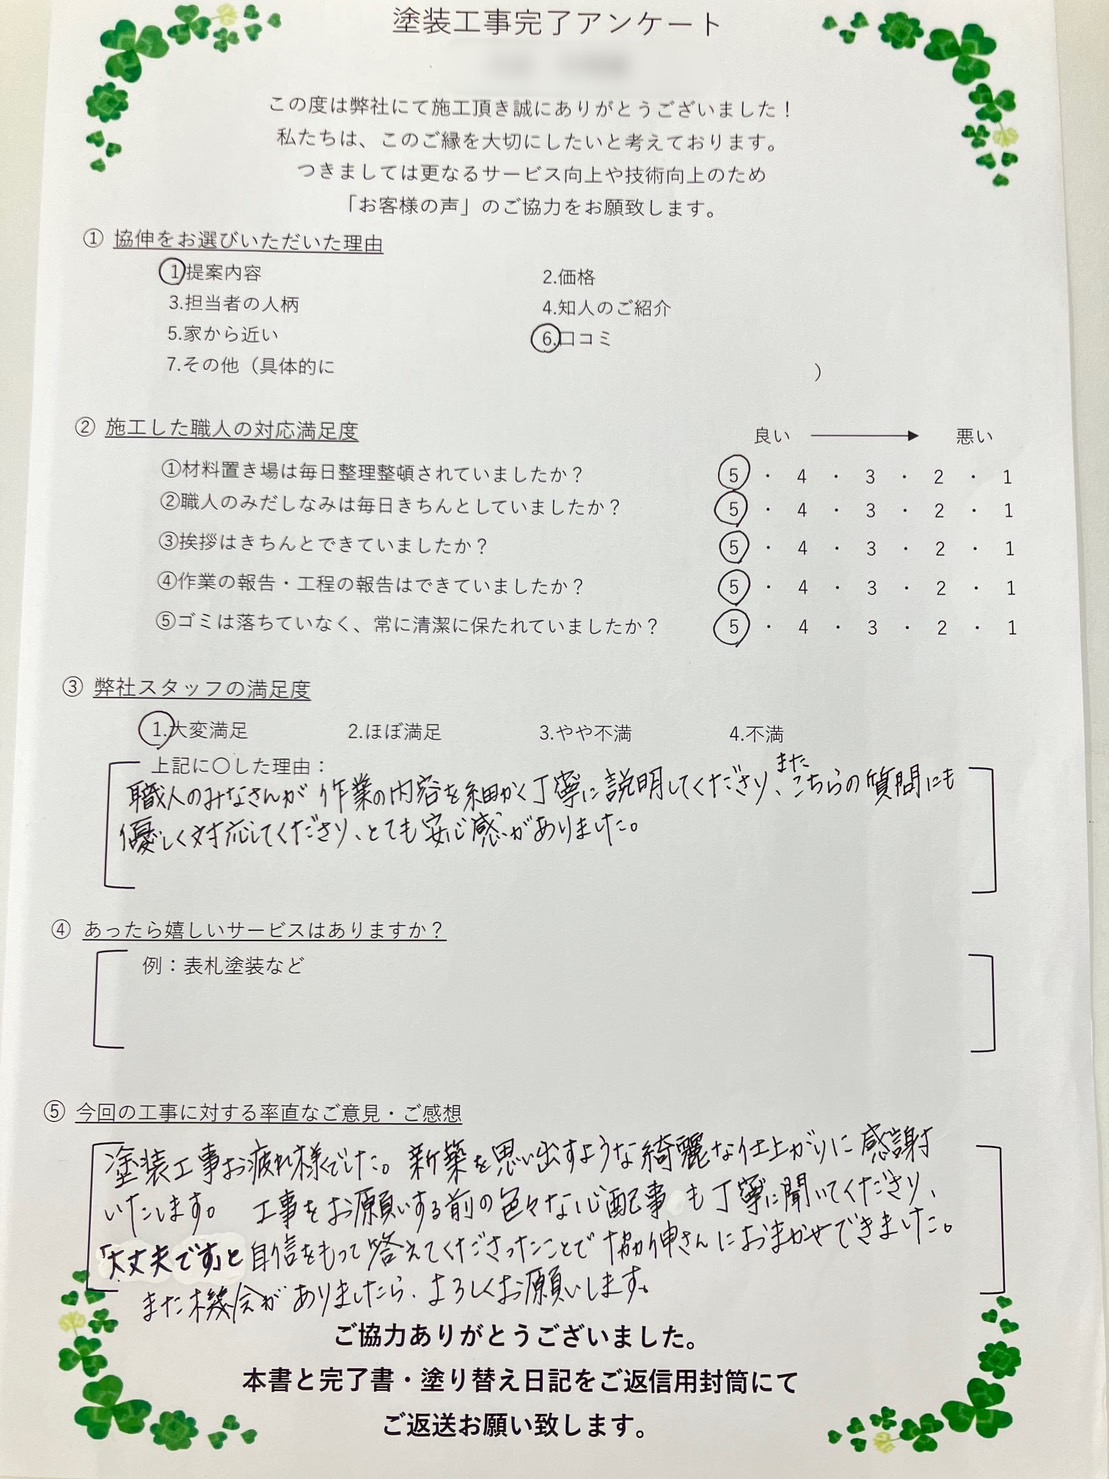 塗装工事完了アンケート
この度は弊社にて施工頂き誠にありがとうございました！
私たちは、このご縁を大切にしたいと考えております。
つきましては更なるサービス向上や技術向上のため
「お客様の声」のご協力をお願致します。
① 協伸をお選びいただいた理由
1.提案内容 2.価格
3.担当者の人柄 4.知人のご紹介
5.家から近い 6.口コミ
7.その他（具体的に ）
② 施工した職人の対応満足度 良い → 悪い
①材料置き場は毎日整理整頓されていましたか？ 5 ・ 4 ・ 3 ・ 2 ・ 1
②職人のみだしなみは毎日きちんとしていましたか？ 5 ・ 4 ・ 3 ・ 2 ・ 1
③挨拶はきちんとできていましたか？ 5 ・ 4 ・ 3 ・ 2 ・ 1
④作業の報告・工程の報告はできていましたか？ 5 ・ 4 ・ 3 ・ 2 ・ 1
⑤ゴミは落ちていなく、常に清潔に保たれていましたか？ 5 ・ 4 ・ 3 ・ 2 ・ 1
③ 弊社スタッフの満足度
1.大変満足 2.ほぼ満足 3.やや不満 4.不満
上記に〇した理由：
職人のみなさんが作業の内容を細かく丁寧に説明してくださり、またこちらの質問にも
優しく対応してくださり、とても安心感がありました。
④ あったら嬉しいサービスはありますか？
例：表札塗装など
⑤ 今回の工事に対する率直なご意見・ご感想
塗装工事お疲れ様でした。新築を思い出すような綺麗な仕上がりに感謝
いたします。 工事をお願いする前の色々な心配事も丁寧に聞いてくださり、
「大丈夫です」と自信をもって答えてくださったことで協伸さんにおまかせできました。
また機会がありましたら、よろしくお願いします。
ご協力ありがとうございました。
本書と完了書・塗り替え日記をご返信用封筒にて
ご返送お願い致します。